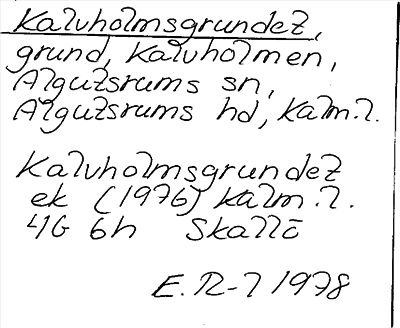 Kalvholmsgrundet,
grund, Kalvholmen,
Algutsrums sn,
Algutsrums hd, Kalm.l.
Kalvholmsgrundet
ek (1976) Kalm.l.
4G 6h Skallö
E. R-l 1978